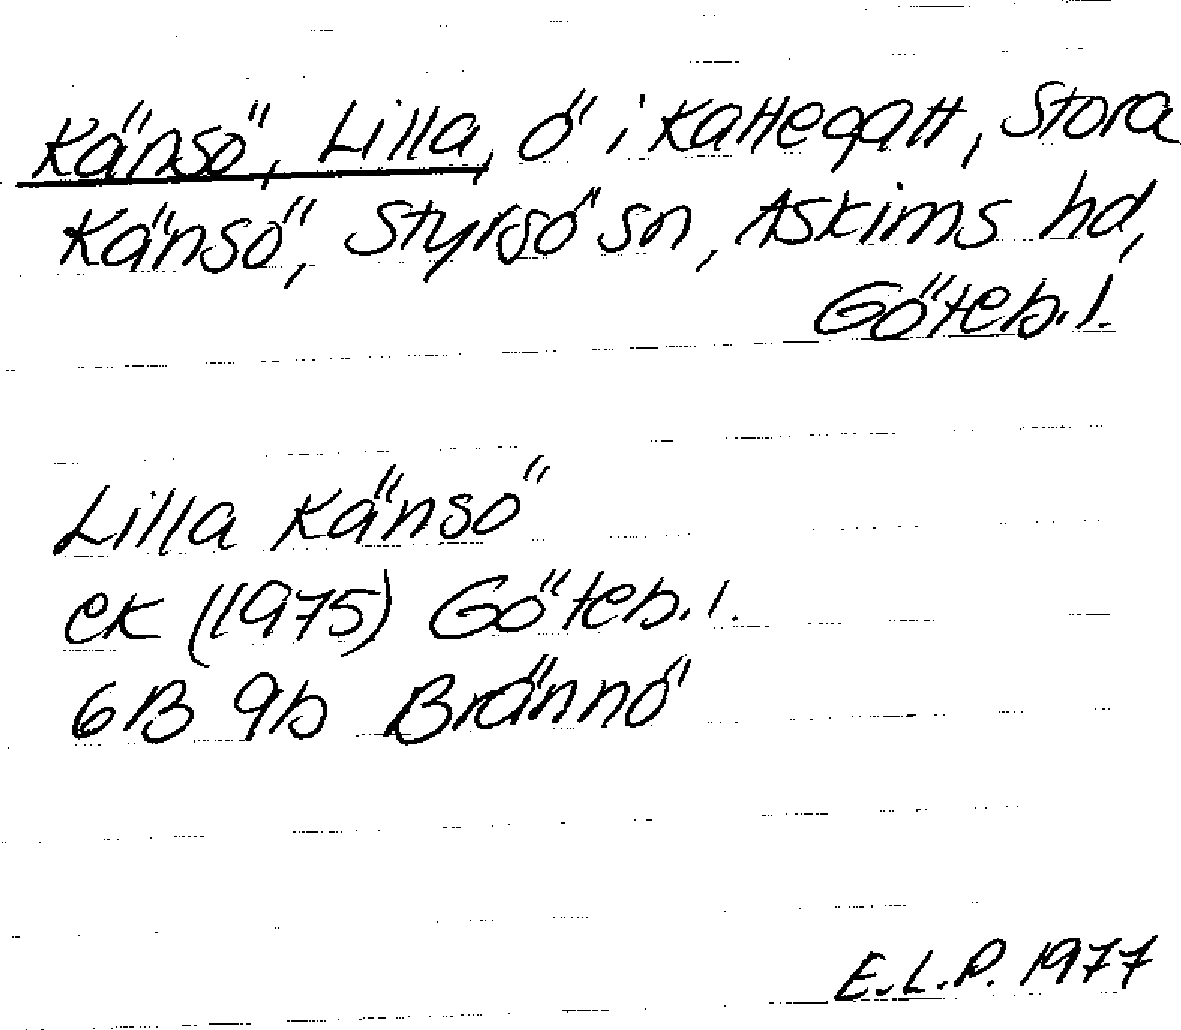 Känsö, Lilla, ö i Kattegatt, Stora
Känsö, Styrsö sn, Askims hd,
Göteb. l.
Lilla Känsö
ek (1975) Göteb. l.
6B 9b Brännö
E.L.P. 1977